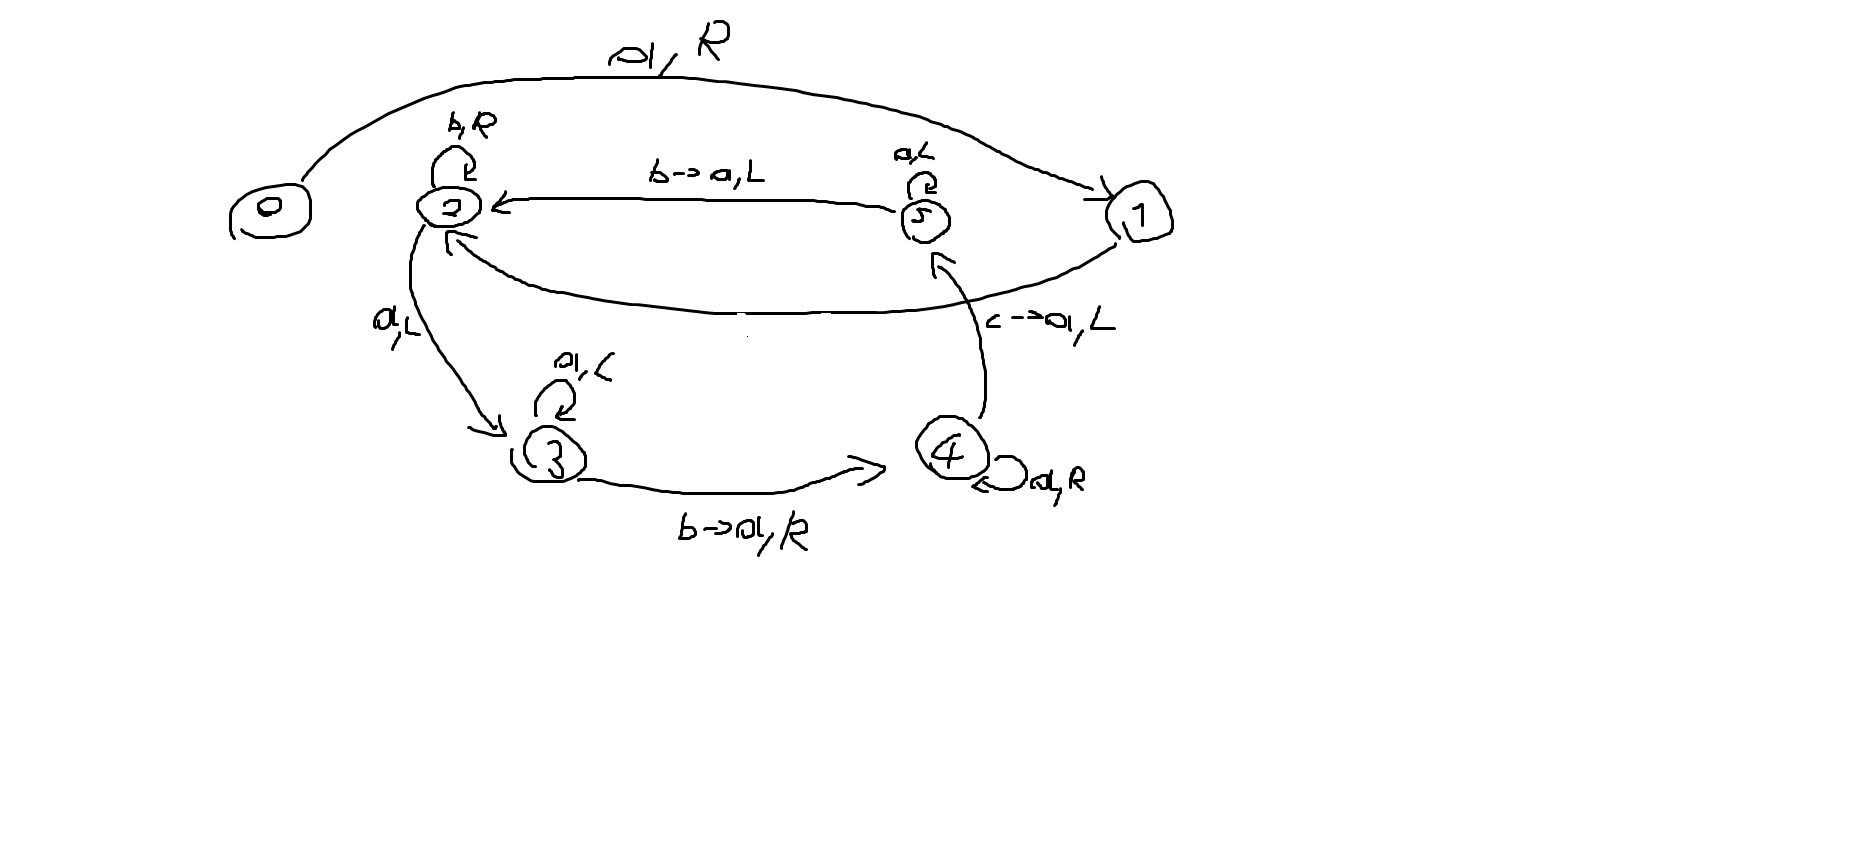 a, R
b, R
b→a, L
a, L
0
2
5
1
a, L
c→a, L
a, L
3
4
a, R
b→a, R